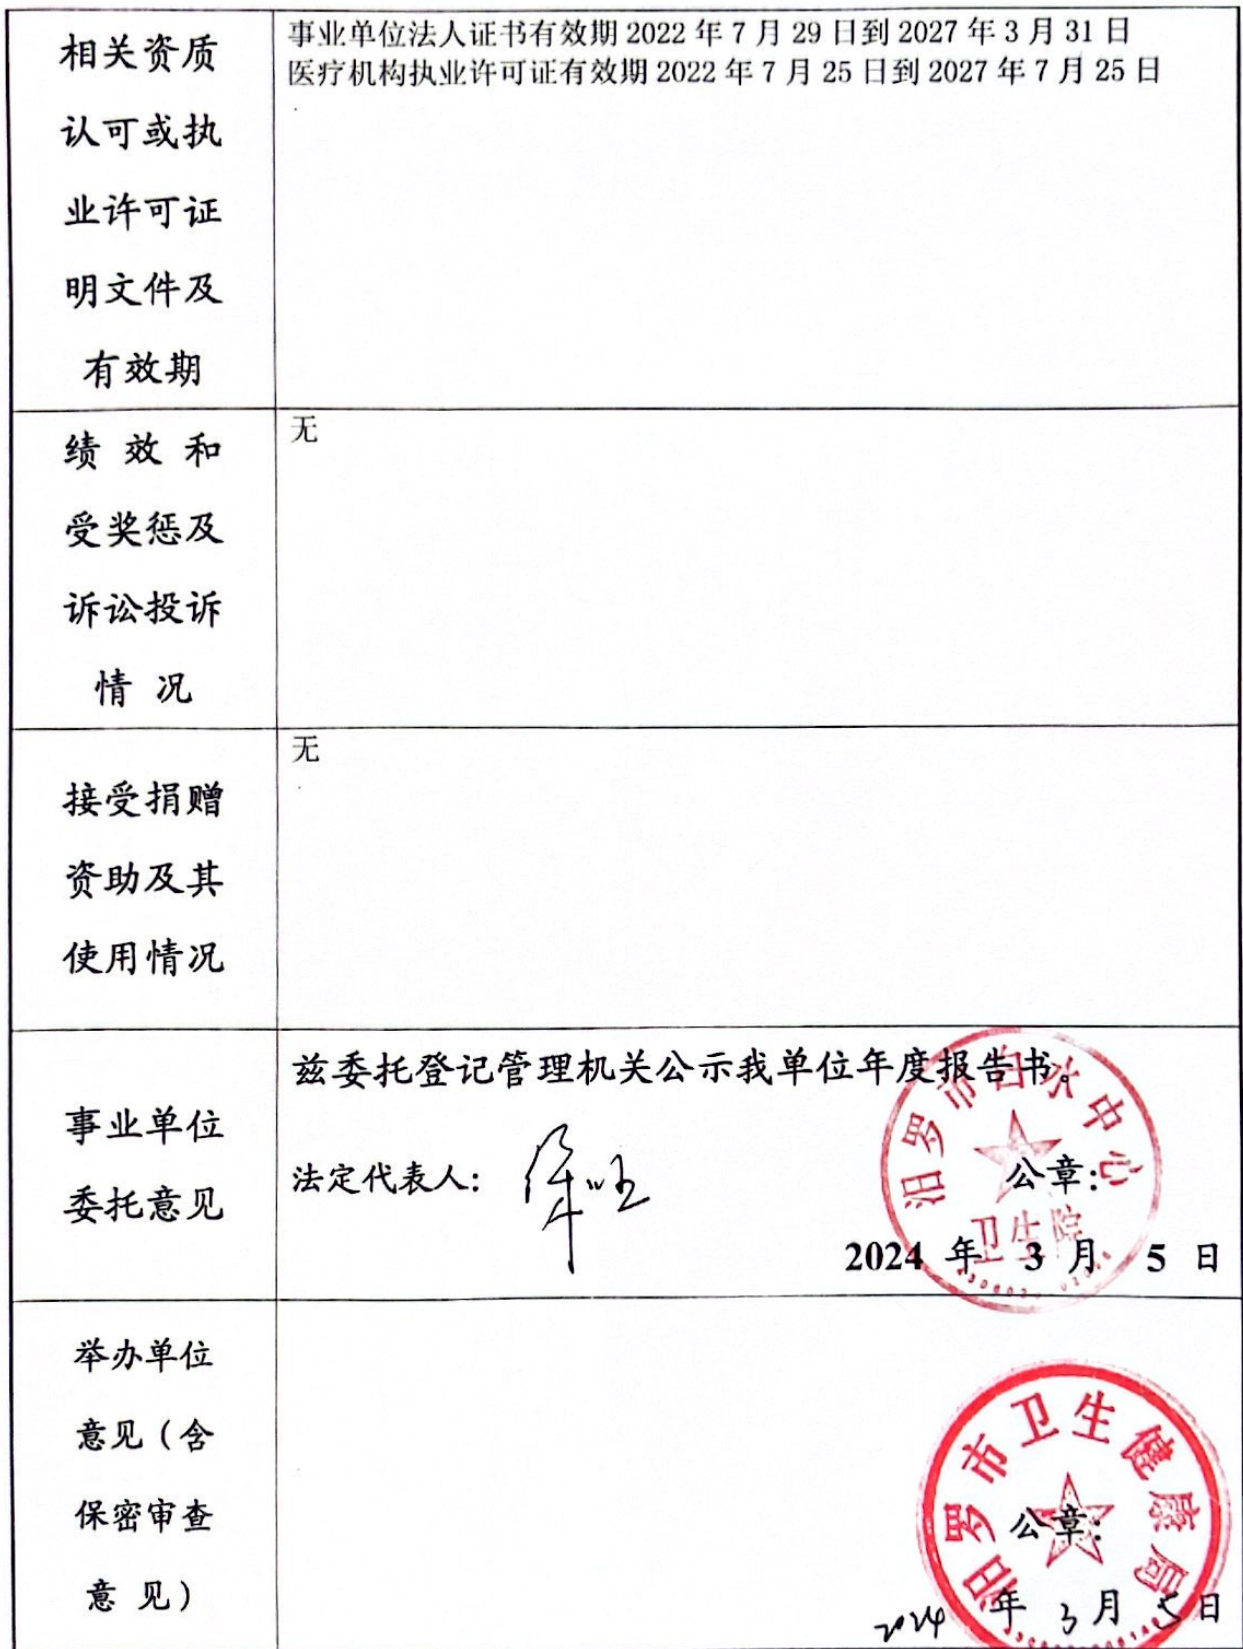 相关资质
认可或执
业许可证
明文件及
有效期
事业单位法人证书有效期 2022 年 7 月 29 日到 2027 年 3 月 31 日
医疗机构执业许可证有效期 2022 年 7 月 25 日到 2027 年 7 月 25 日
绩 效 和
受奖惩及
诉讼投诉
情 况
无
接受捐赠
资助及其
使用情况
无
事业单位
委托意见
兹委托登记管理机关公示我单位年度报告书。
法定代表人：
公章：
2024 年 3 月 5 日
汨罗市白水中心
卫生院
举办单位
意见（含
保密审查
意 见）
汨罗市卫生健康局
公章：
2024 年 3 月 5 日